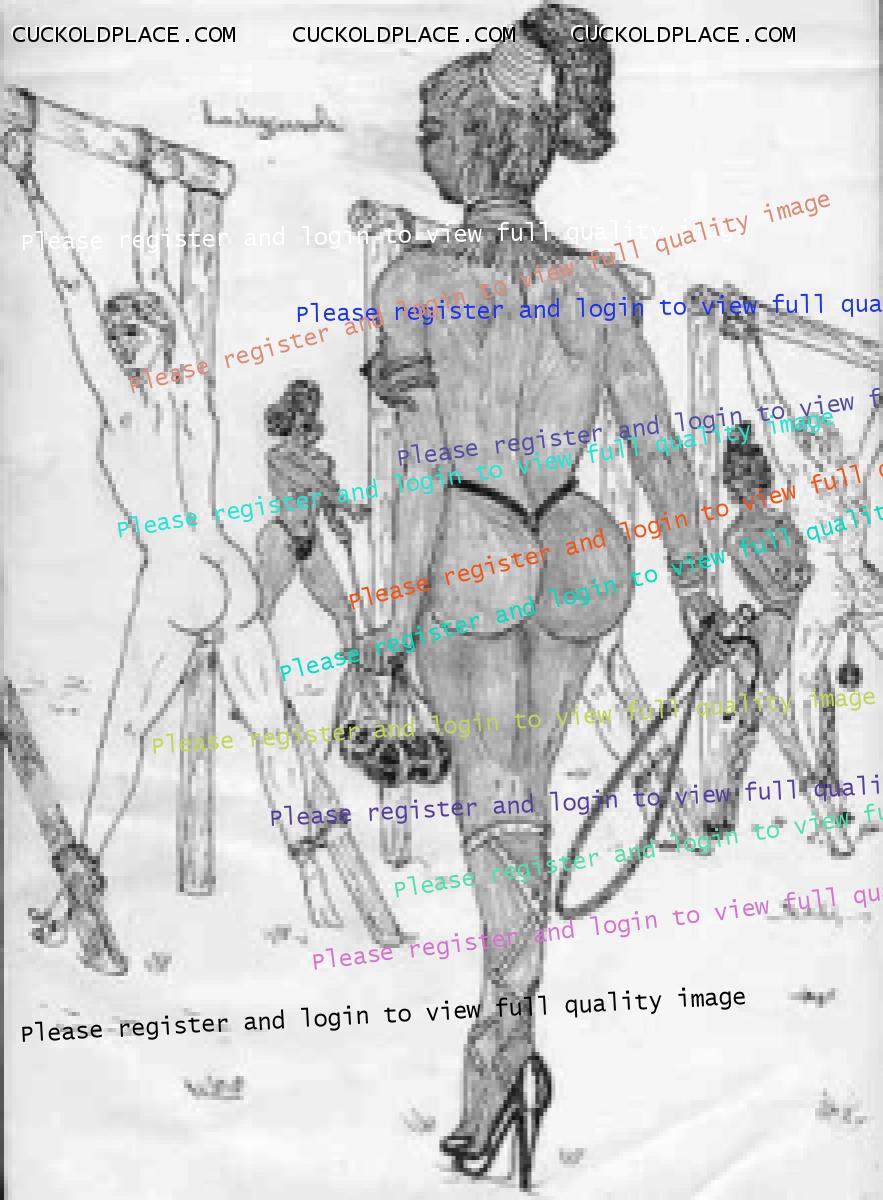 CUCKOLDPLACE.COM CUCKOLDPLACE.COM CUCKOLDPLACE.COM
Please register and login to view full quality image
Please register and login to view full quality image
Please register and login to view full qua
Please register and login to view f
Please register and login to view full quality image
Please register and login to view full
Please register and login to view full qualit
Please register and login to view full quality image
Please register and login to view full quali
Please register and login to view fu
Please register and login to view full qua
Please register and login to view full quality image